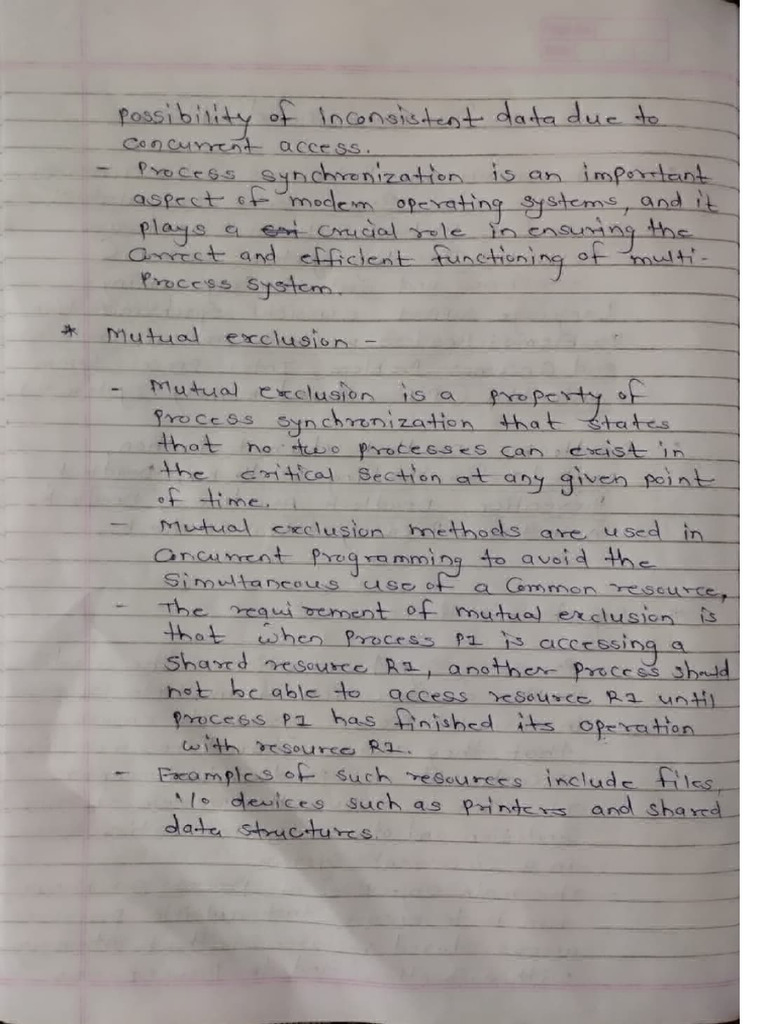 possibility of inconsistent data due to
concurrent access.
- Process synchronization is an important
aspect of modern operating systems, and it
plays a crucial role in ensuring the
correct and efficient functioning of multi-
process system.
* Mutual exclusion -
- Mutual exclusion is a property of
process synchronization that states
that no two processes can exist in
the critical section at any given point
of time.
- Mutual exclusion methods are used in
concurrent programming to avoid the
simultaneous use of a common resource,
- The requirement of mutual exclusion is
that when process P1 is accessing a
shared resource R1, another process should
not be able to access resource R1 until
process P1 has finished its operation
with resource R1.
- Examples of such resources include files,
I/o devices such as printers and shared
data structures.